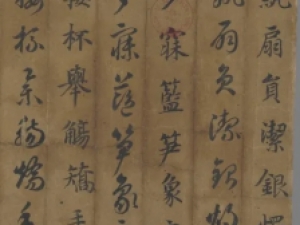 紈扇員潔銀燭
紈扇員潔銀燭
夕寐藍笋象
夕寐藍笋象
接杯舉觴矯手
接杯舉觴矯手